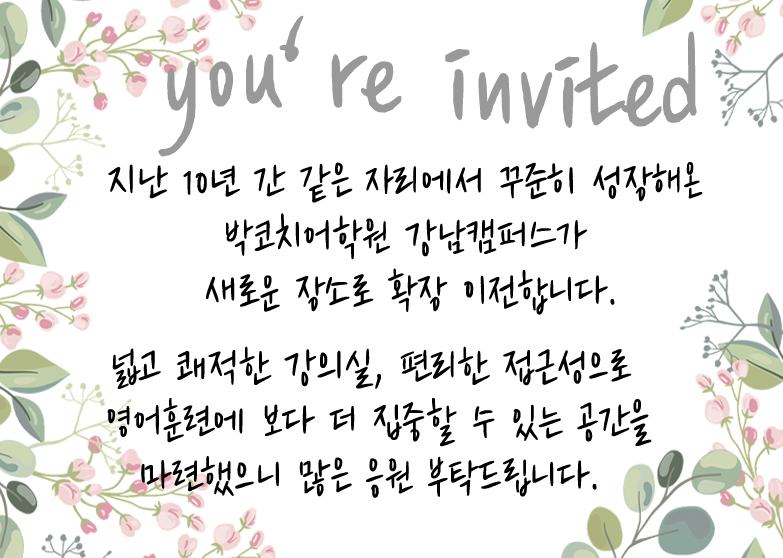 you're invited
지난 10년 간 같은 자리에서 꾸준히 성장해온
박코치어학원 강남캠퍼스가
새로운 장소로 확장 이전합니다.
넓고 쾌적한 강의실, 편리한 접근성으로
영어훈련에 보다 더 집중할 수 있는 공간을
마련했으니 많은 응원 부탁드립니다.